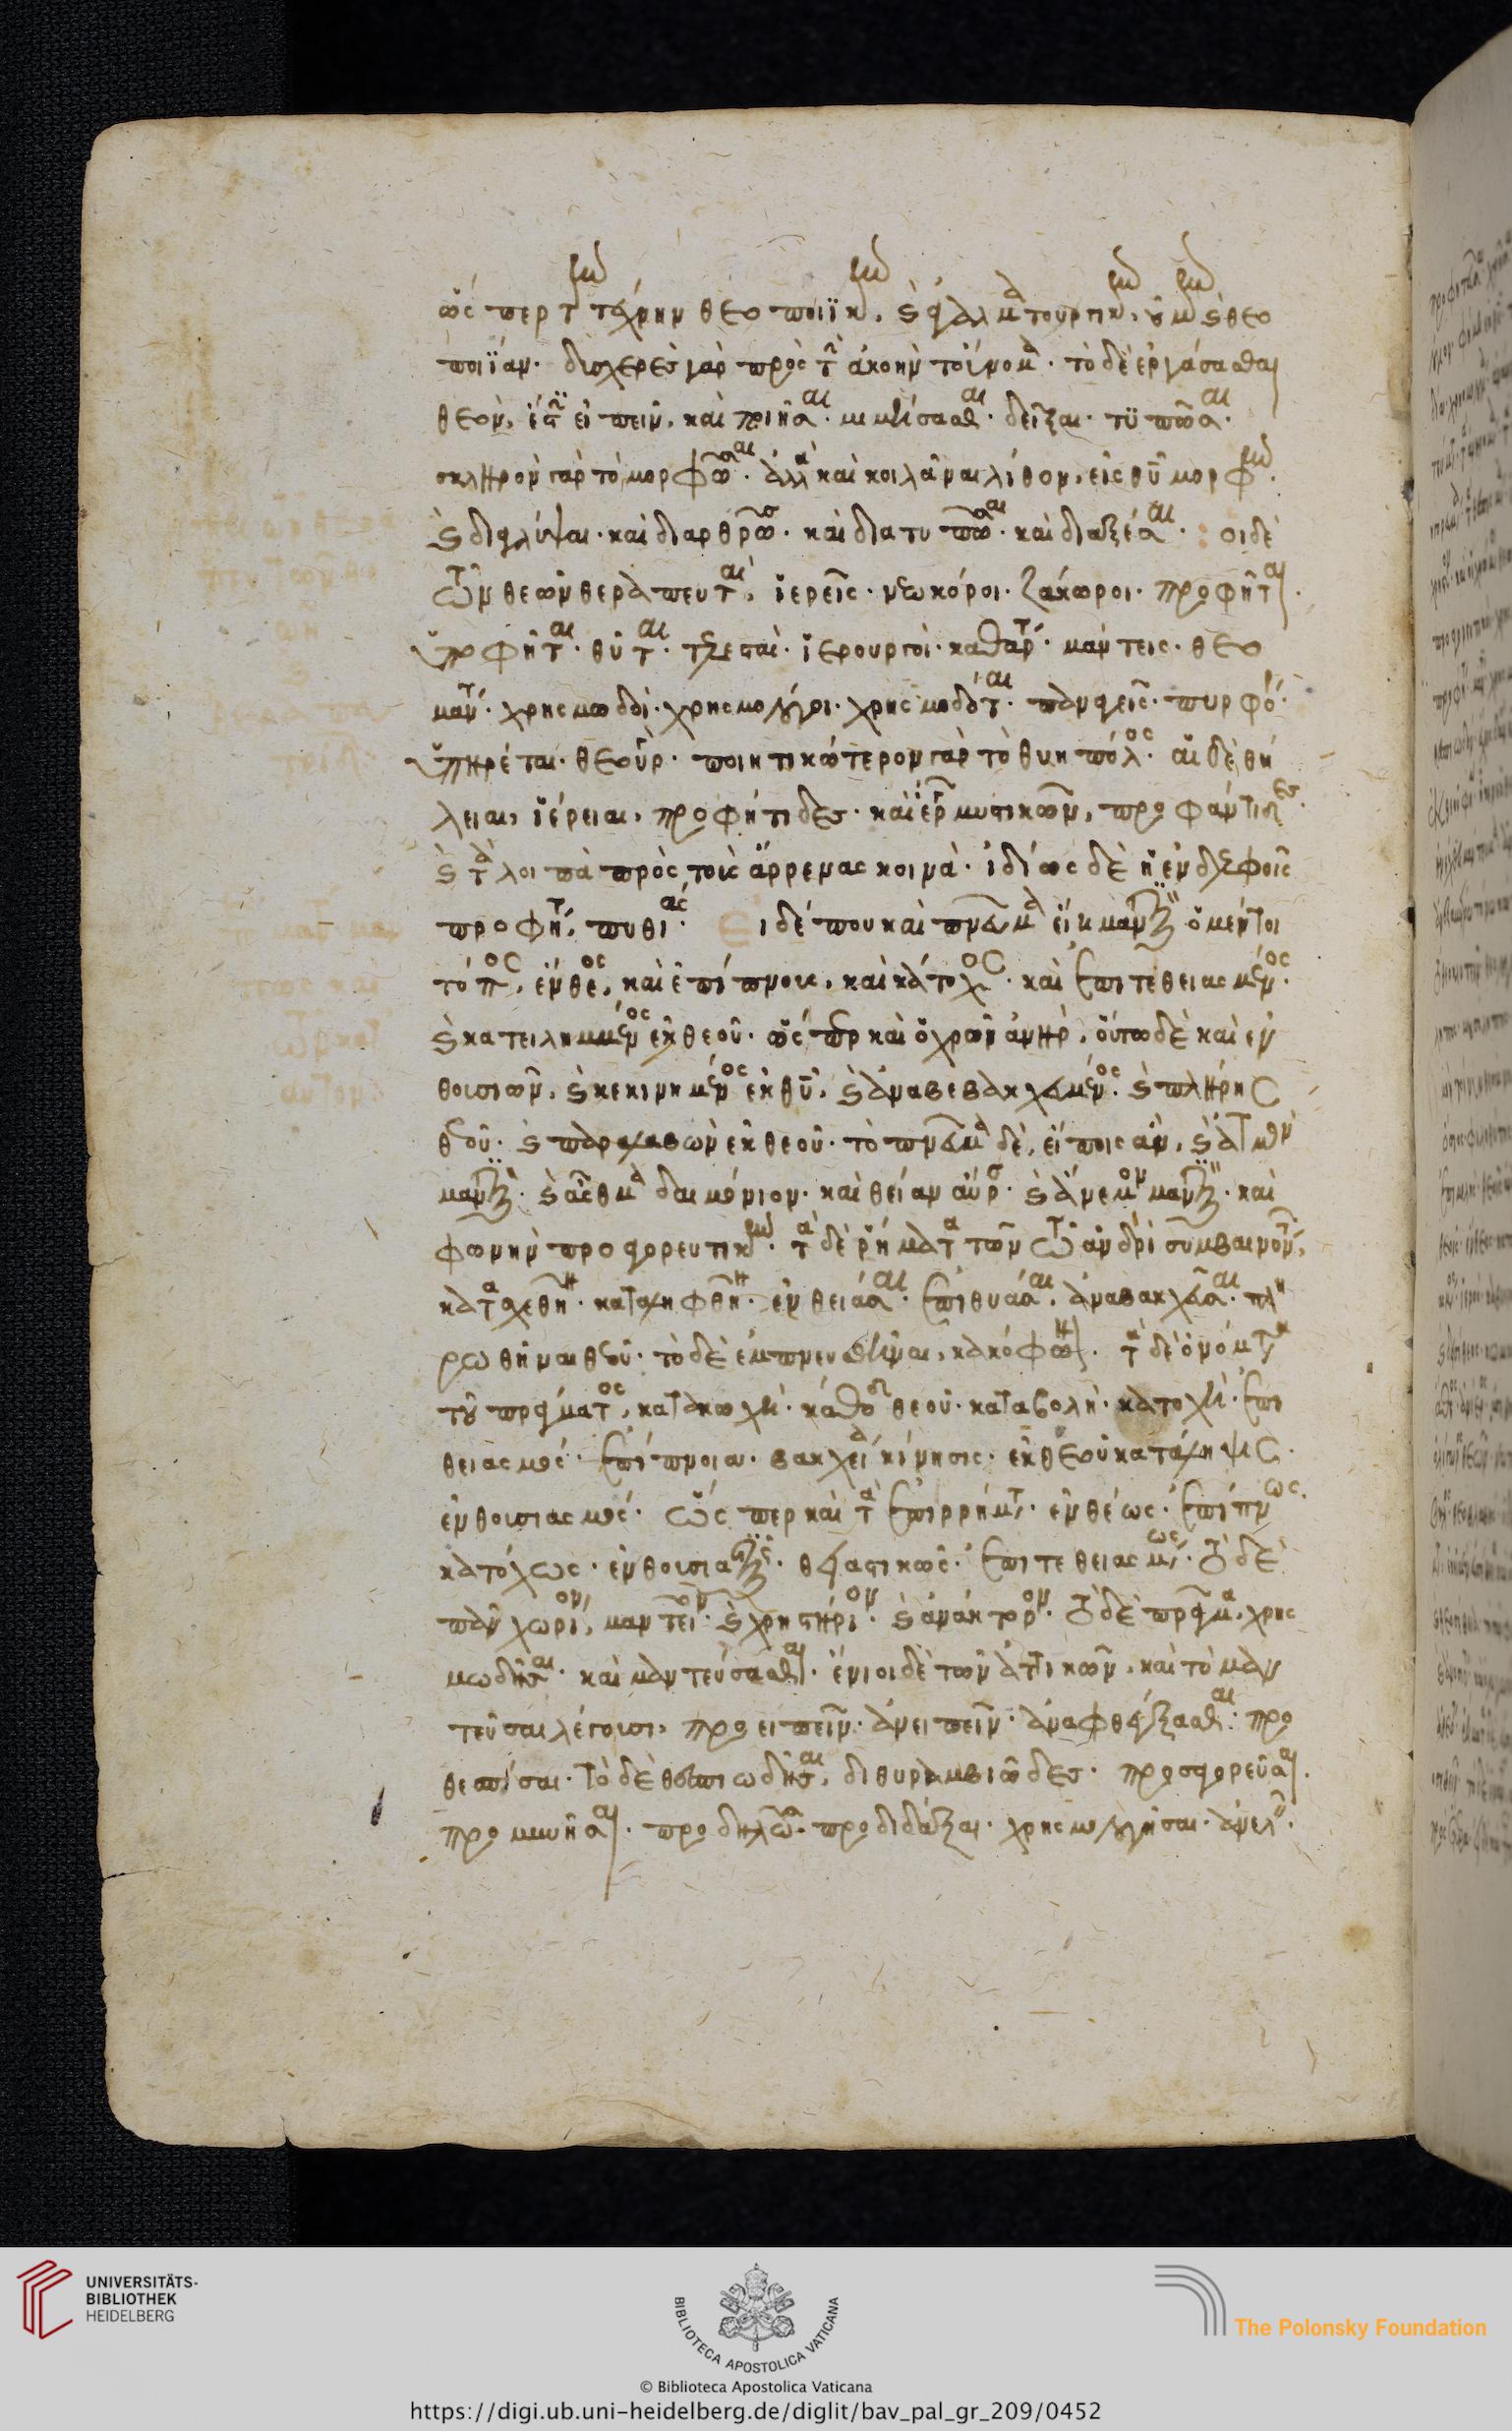 ὥσπερ τὴν τέχνην θεοποιϊκὴν, καὶ ἀγαλματουργικὴν, οὐ μὴν καὶ θεο
ποιΐαν· δυσχερὲς γὰρ πρὸς τὴν ἀκοὴν τοὔνομα· τὸ δὲ ἐργάσασθαι
θεὸν, ἔστιν εἰπεῖν, καὶ ποιῆσαι· μιμήσασθαι· δεῖξαι· τυπῶσαι·
σκληρὸν γὰρ τὸ μορφῶσαι· ἀλλὰ καὶ κοιλᾶναι λίθον, εἰς θεοῦ μορφὴν·
καὶ διαγλύψαι· καὶ διαρθρῶσαι· καὶ διατυπῶσαι· καὶ διαξέσαι· οἱ δὲ
τῶν θεῶν θεραπευταὶ, ἱερεῖς· νεωκόροι· ζάκωροι· προφῆται·
ὑποφῆται· θύται· τελεσταὶ· ἱερουργοὶ· καθαρταί· μάντεις· θεο
μάντεις· χρησμωδοὶ· χρησμολόγοι· χρησμοδόται· παναγεῖς· πυρφόροι·
ὑπηρέται· θεουργοὶ· ποιητικώτερον γὰρ τὸ θυηπόλος· αἱ δὲ θή
λειαι, ἱέρειαι, προφήτιδες· καὶ ἱέρειαι μυστικῶν, προφάντιδες·
καὶ τὰ λοιπὰ πρὸς τοὺς ἄρρενας κοινὰ· ἰδίως δὲ ἡ ἐν δελφοῖς
προφῆτις, πυθιάς· εἰ δέ που καὶ πνεῦμα εἴη μαντικὸν ὁ μέντοι
τόπος, ἔνθεος, καὶ ἐπίπνους, καὶ κάτοχος· καὶ ἐπιτεθειασμένος·
καὶ κατειλημμένος ἐκ θεοῦ· ὥσπερ καὶ ὁ χρῶν ἀνὴρ, οὕτω δὲ καὶ ἐν
θουσιῶν, καὶ κεκινημένος ἐκ θεοῦ, καὶ ἀναβεβακχευμένος· καὶ πλήρης
θεοῦ· καὶ παραλαβὼν ἐκ θεοῦ· τὸ πνεῦμα δὲ, εἴποις ἂν, καὶ ἀτμὸν
μαντικὸν· καὶ ἆσθμα δαιμόνιον· καὶ θείαν αὔραν· καὶ ἄνεμον μαντικὸν· καὶ
φωνὴν προαγορευτικὴν· τὰ δὲ ῥήματα τῶν τῷ ἀνδρὶ συμβαινόντων,
κατασχεθῆναι· καταληφθῆναι· ἐνθειάσαι· ἐπιθειάσαι· ἀναβακχεῦσαι· πλη
ρωθῆναι θεοῦ· τὸ δὲ ἐμπνευσθῆναι, κακόφωνον· τὰ δὲ ὀνόματα
τοῦ πράγματος, κατακωχὴ· κάθοδος θεοῦ· καταβολὴ· κατοχὴ· ἐπι
θειασμός· ἐπίπνοια· βακχεία κίνησις· ἐκ θεοῦ κατάληψις·
ἐνθουσιασμός· ὥσπερ καὶ τὰ ἐπιρρήματα· ἐνθέως· ἐπίπνως·
κατόχως· ἐνθουσιαστικῶς· θεαστικῶς· ἐπιτεθειασμένως· τὸ δὲ
πᾶν χωρίον, μαντεῖον· καὶ χρηστήριον· καὶ ἀνάκτορον· τὸ δὲ πρᾶγμα, χρησ
μωδῆσαι· καὶ μαντεύσασθαι· ἔνιοι δὲ τῶν ἀττικῶν, καὶ τὸ μαν
τεῦσαι λέγουσι, προειπεῖν· ἀνειπεῖν· ἀναφθέγξασθαι· προ
θεσπίσαι· τὸ δὲ θεσπιωδῆσαι, διθυραμβιῶδες· προσαγορεῦσαι·
προμηνῦσαι· προδηλῶσαι· προδιδάξαι· χρησμολογῆσαι· ἀνελεῖν·
UNIVERSITÄTS-
BIBLIOTHEK
HEIDELBERG
BIBLIOTECA APOSTOLICA VATICANA
The Polonsky Foundation
© Biblioteca Apostolica Vaticana
https://digi.ub.uni-heidelberg.de/diglit/bav_pal_gr_209/0452